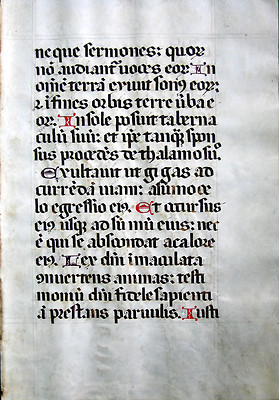 neque sermones: quoꝝ
nō audiant᷑ uoces eoꝝ: In
om̄ē terrā exiuit sonꝰ eoꝝ:
⁊ ĩ fines orbis terre ũba e
oꝝ. In sole posuit taberna
culũ suũ: et ip̃e tanq̃ spon
sus procedēs de thalamo suo᷒.
Exultauit ut gigas ad
currẽdã uiam: a sumo ce
lo egressio eiꝰ. Et occursus
eiꝰ usq; ad sũmũ eius: nec
ē qui se abscondat a calore
eiꝰ. Lex dñi imaculata
ꝯuertens animas: testi
moniũ dñi fidele sapienti
ã prestans paruulis. Iusti